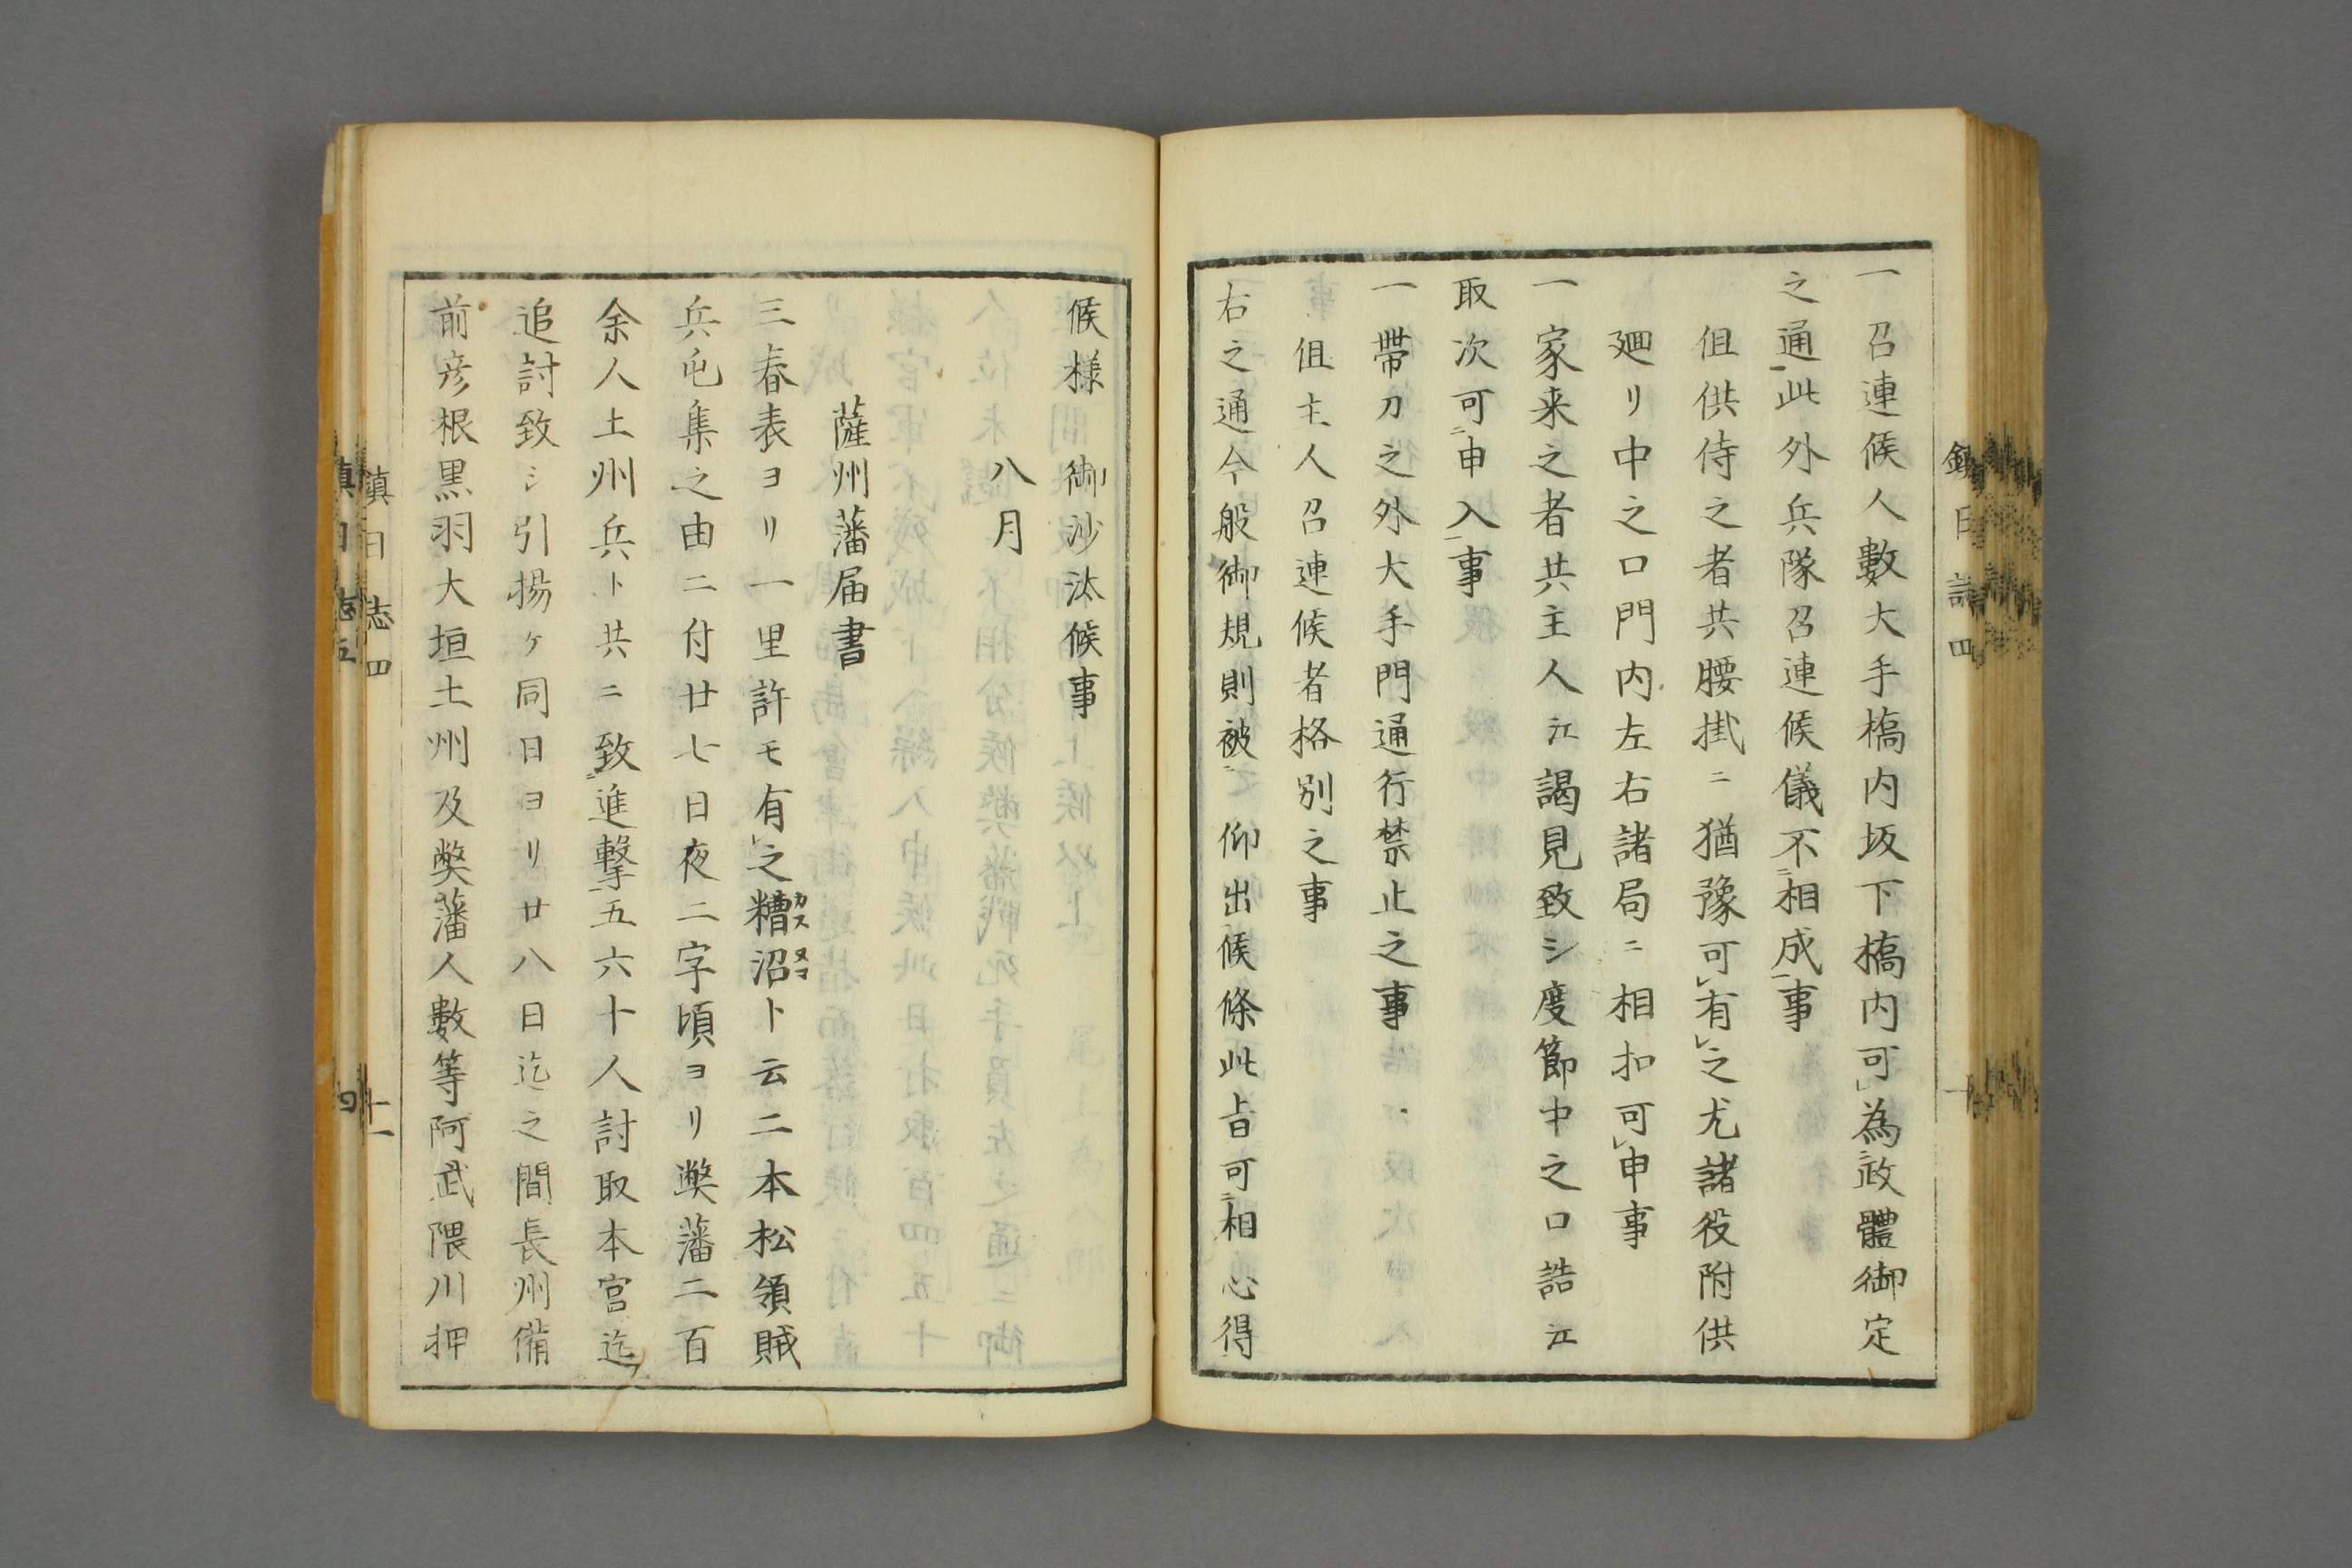 一召連候人數大手橋内坂下橋内可㆑為㆓政體御定
之通㆒此外兵隊召連候儀不㆓相成㆒事
但供侍之者共腰掛ニ猶豫可㆑有㆑之尤諸役附供
廻リ中之口門内左右諸局ニ相扣可㆑申事
一家来之者共主人江謁見致シ度節中之口詰江
取次可㆓申入㆒事
一帶刀之外大手門通行禁止之事
但主人召連候者格別之事
右之通今般御規則被㆓ 仰出㆒候條此旨可㆓相心得㆒
候様 御沙汰候事
八月
薩州藩届書
三春表ヨリ一里許モ有㆑之糟沼カスヌマト云二本松領賊
兵屯集之由ニ付廿七日夜二字頃ヨリ弊藩二百
余人土州兵ト共ニ致㆓進撃㆒五六十人討取本宮迄
追討致シ引揚ケ同日ヨリ廿八日迄之間長州備
前彦根黒羽大垣土州及弊藩人數等阿武隈川押
鎮日誌四
鎮日志四
十一